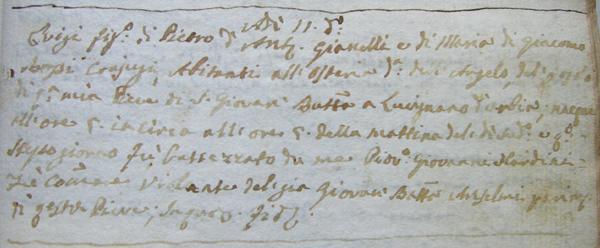 Adì 11 d.o
Luigi fig.o di Pietro di Ant.o Gianelli e di Maria di Giacomo
Crespi, Abitanti all'Osteria d.a dell'Angelo, del
di q.a mia Pieve di S. Giovan Batta a nacque
all'ore 5. in circa all'ore 5. della mattina del dì sud.o e q.o
stesso giorno fù battezzato da me Piov.o Giovanni Nardini
Fù Comare Violante del già Giovan Batta Anselmi
di questa Pieve, In quor. fid.